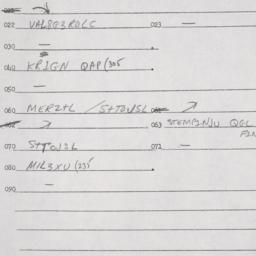 022 VAL8G3ROLC 023 —
030 —
040 KRIGN QAP (305
050 —
060 MERZTL / STTOWSL
063 STEMPINJU QGL
070 STTOWSL 072 —
080 MIL3XU (235
090 —